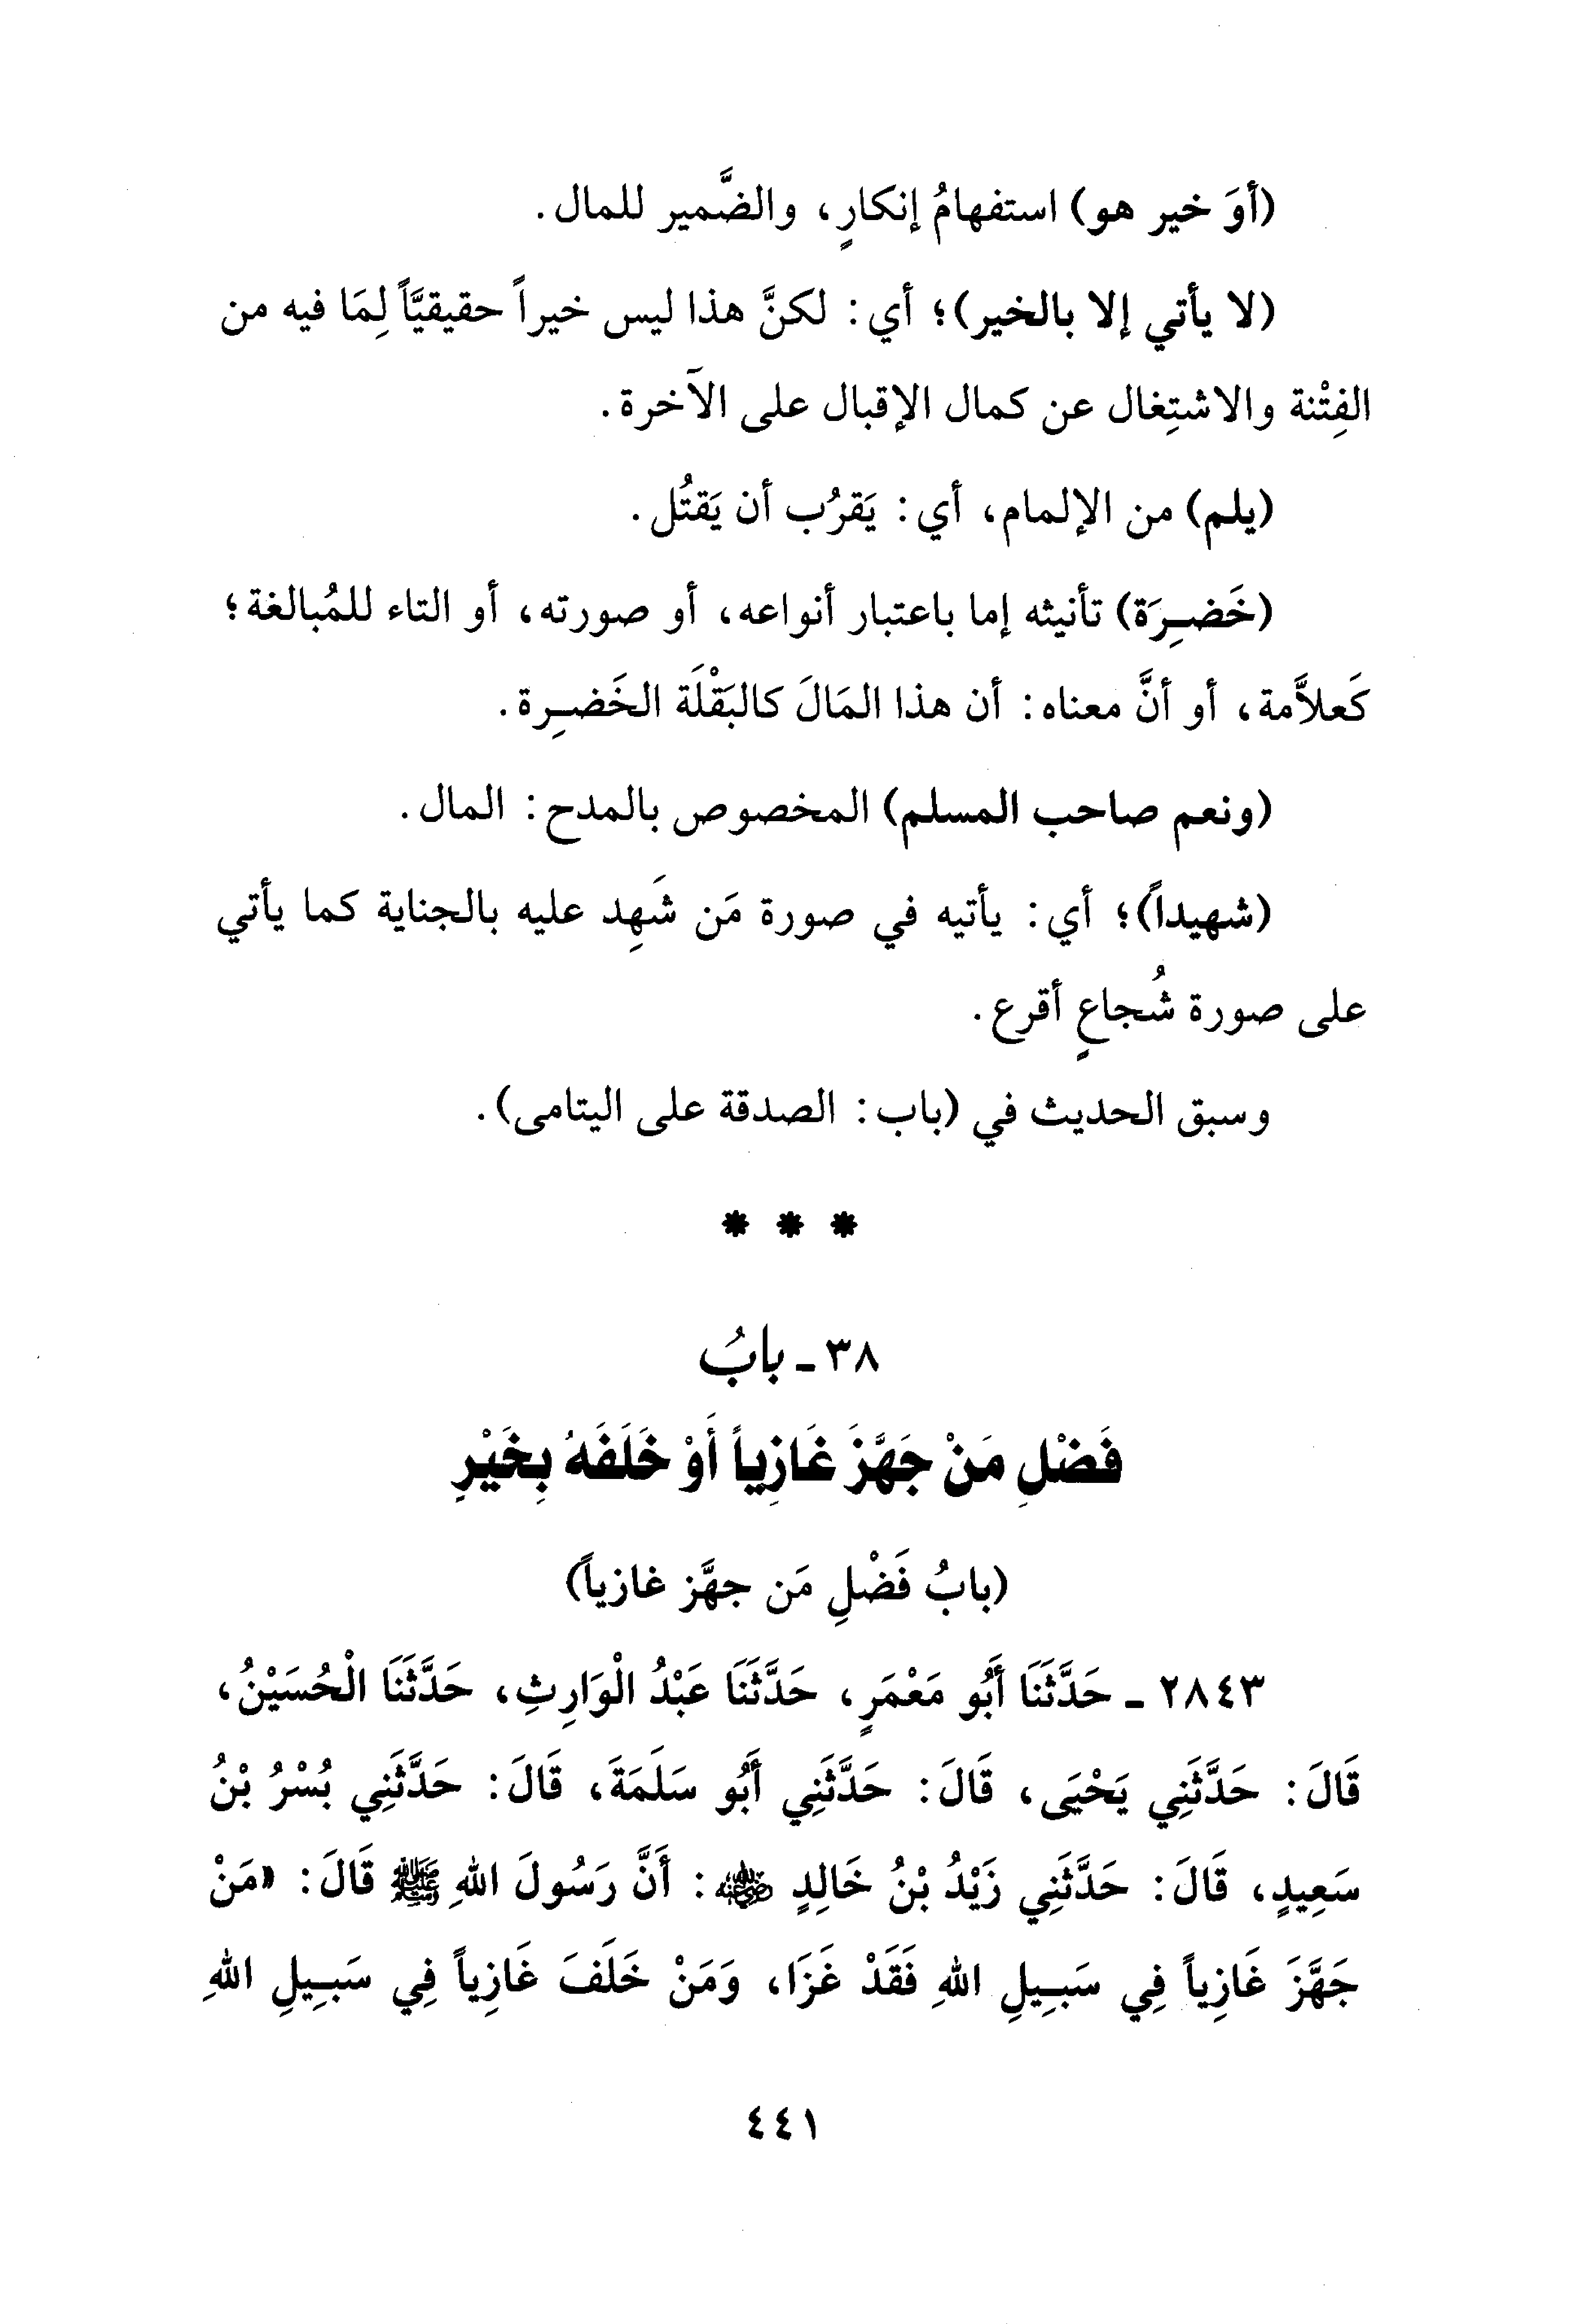 (أوَ خير هو) استفهامُ إنكارٍ، والضَّمير للمال.
(لا يأتي إلا بالخير)؛ أي: لكنَّ هذا ليس خيراً حقيقيَّاً لِمَا فيه من
الفِتْنة والاشتِغال عن كمال الإقبال على الآخرة.
(يلم) من الإلمام، أي: يَقرُب أن يَقتُل.
(خَضِرَة) تأنيثه إما باعتبار أنواعه، أو صورته، أو التاء للمُبالغة؛
كَعلاَّمة، أو أنَّ معناه: أن هذا المَالَ كالبَقْلَة الخَضِرة.
(ونعم صاحب المسلم) المخصوص بالمدح: المال.
(شهيداً)؛ أي: يأتيه في صورة مَن شَهِد عليه بالجناية كما يأتي
على صورة شُجاعٍ أقرع.
وسبق الحديث في (باب: الصدقة على اليتامى).
* * *
٣٨ - بابُ
فَضْلِ مَنْ جَهَّزَ غَازِياً أَوْ خَلَفَهُ بِخَيْرٍ
(بابُ فَضْلِ مَن جهَّز غازياً)
٢٨٤٣ - حَدَّثَنَا أَبُو مَعْمَرٍ، حَدَّثَنَا عَبْدُ الْوَارِثِ، حَدَّثَنَا الْحُسَيْنُ،
قَالَ: حَدَّثَنِي يَحْيَى، قَالَ: حَدَّثَنِي أَبُو سَلَمَةَ، قَالَ: حَدَّثَنِي بُسْرُ بْنُ
سَعِيدٍ، قَالَ: حَدَّثَنِي زَيْدُ بْنُ خَالِدٍ ﵁: أَنَّ رَسُولَ اللهِ ﷺ قَالَ: «مَنْ
جَهَّزَ غَازِياً فِي سَبِيلِ اللهِ فَقَدْ غَزَا، وَمَنْ خَلَفَ غَازِياً فِي سَبِيلِ اللهِ
٤٤١